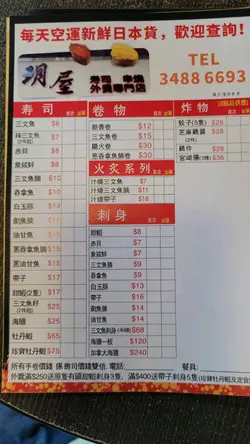 每天空運新鮮日本貨，歡迎查詢！
明屋
壽司 串燒
外賣專門店
TEL
3488 6693
壽司
三文魚 $6
辣三文魚 $7
赤貝 $8
象拔蚌 $8
三文魚腩 $10
吞拿魚 $10
白玉豚 $14
劍魚腩
油甘魚 $15
蔥吞拿魚腩 $15
蔥油甘魚 $15
帶子 $17
甜蝦(2隻) $17
三文魚籽 $25
海膽 $25
牡丹蝦 $65
珍寶牡丹蝦 $75
卷物
新香卷 $12
三文魚卷 $15
鰻火卷 $30
蔥吞拿魚腩卷 $30
火炙系列
汁燒三文魚 $7
汁燒三文魚腩 $11
汁燒帶子 $18
刺身
甜蝦 $8
赤貝 $7
象拔蚌 $7
三文魚腩 $9
吞拿魚 $9
油甘魚 $13
白玉豚 $13
帶子 $16
劍魚腩 $14
油甘腩 $14
三文魚刺身 $68
海膽一板 $120
加拿大海膽 $240
炸物
餃子(5隻) $28
芝麻雞翼 $28
雞件 $28
宮崎蠔(3個) $36
所有手卷價錢 係壽司價錢雙倍. 電話:
餐具:
外賣滿$250送原隻有頭甜蝦刺身3隻, 滿$400送帶子刺身5隻